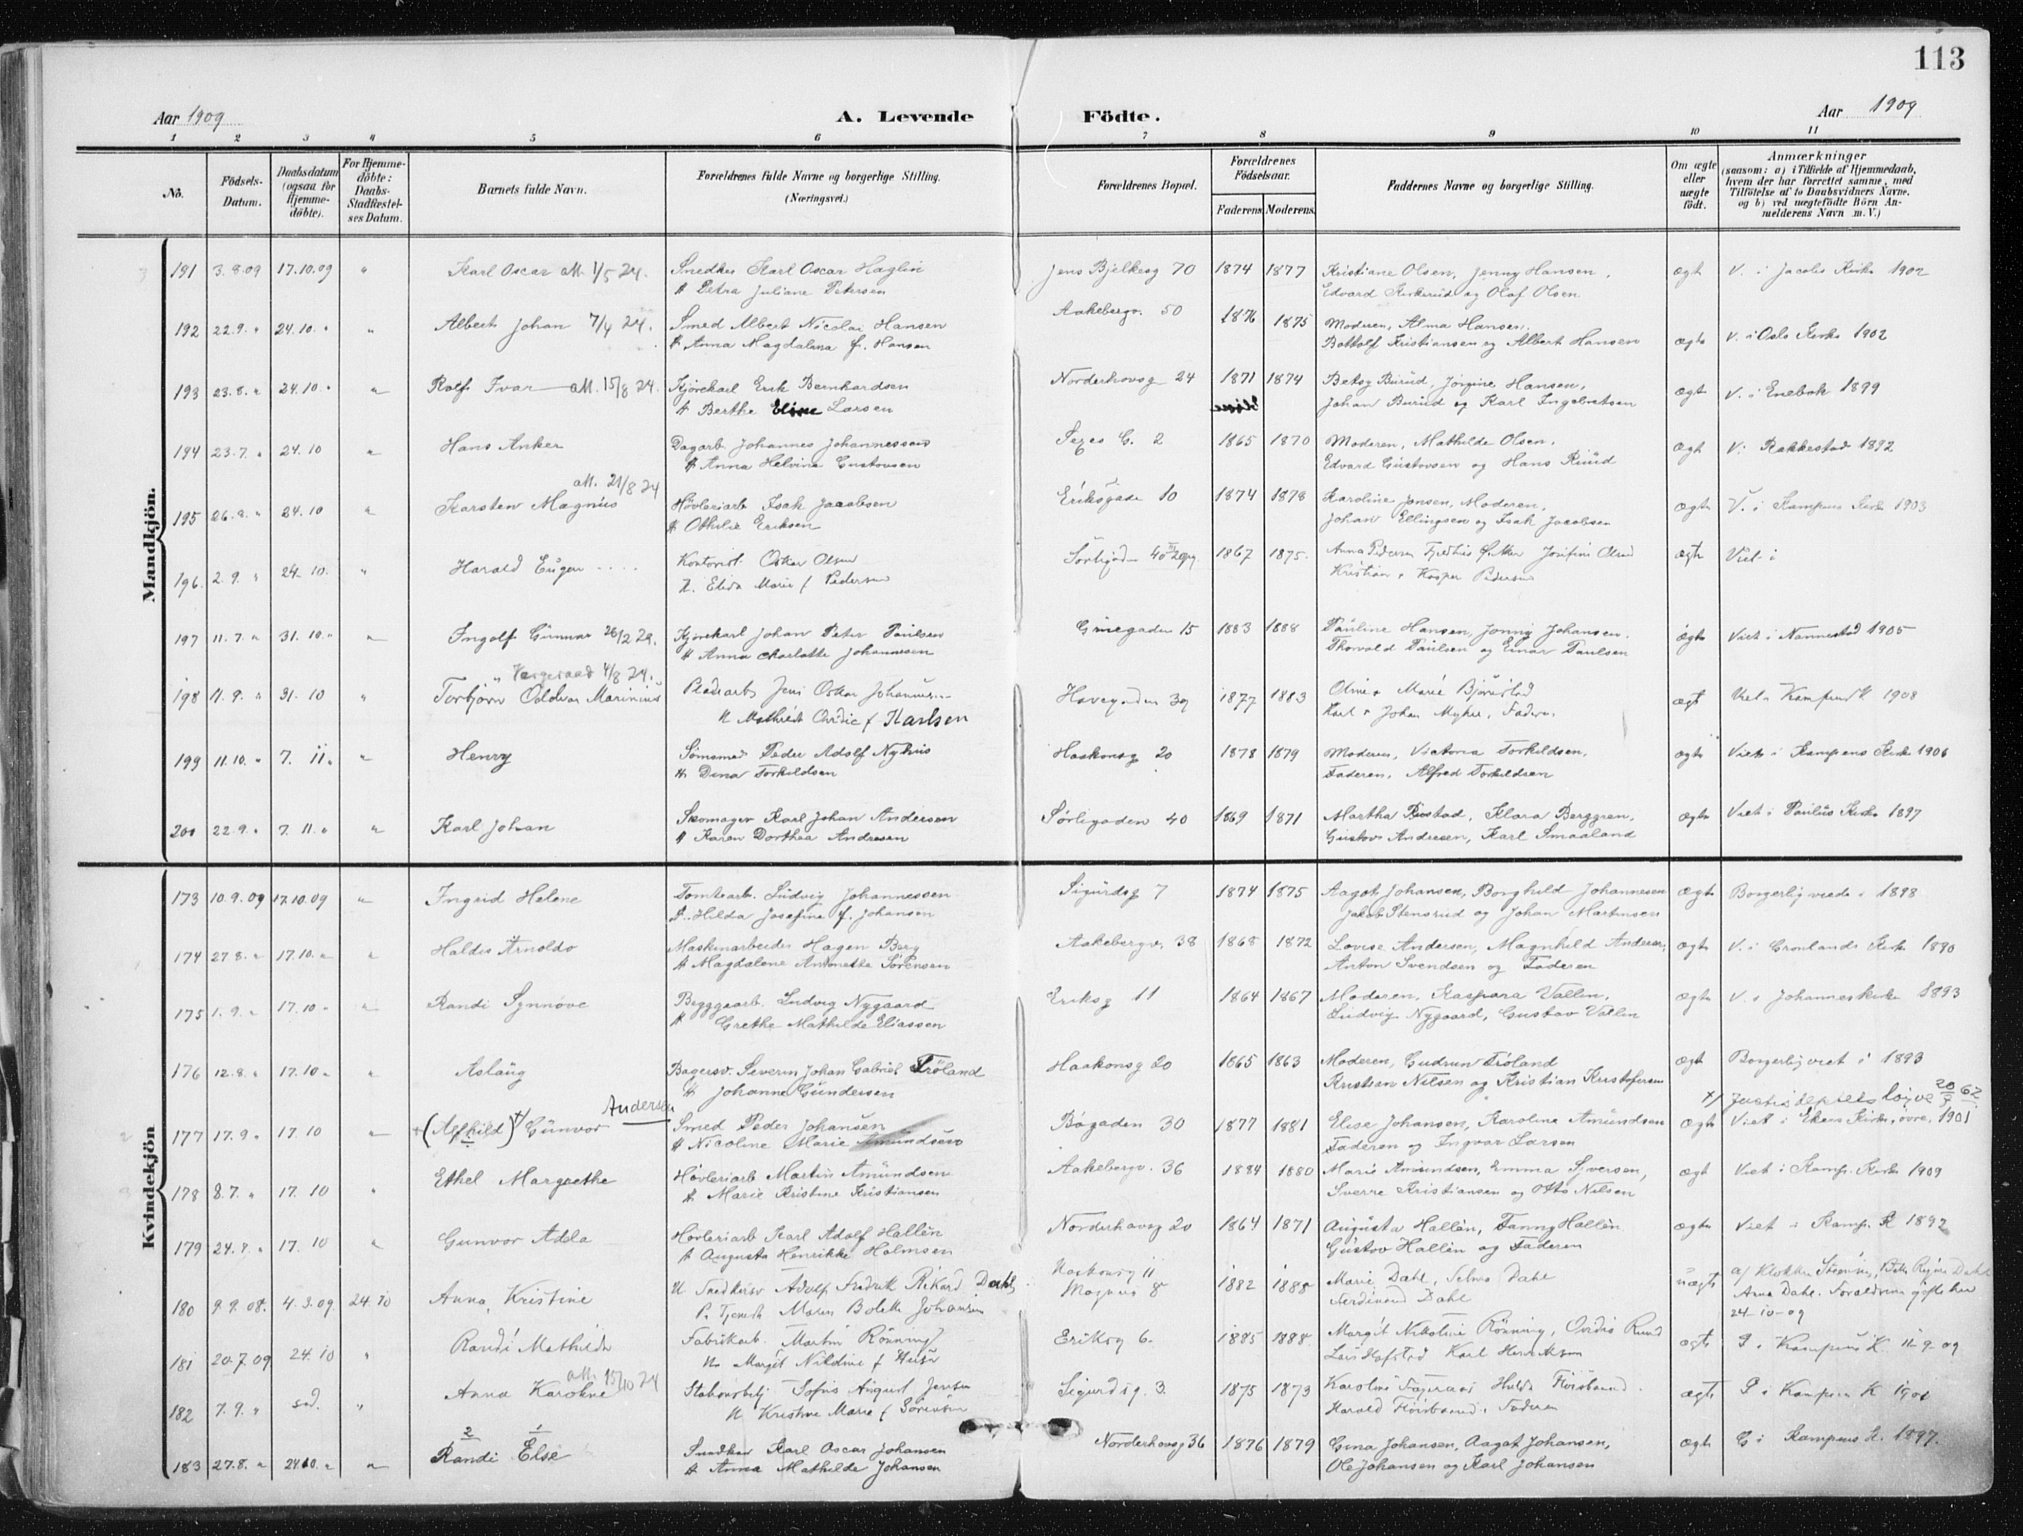 113
Aar 1909 A. Levende Födte. Aar 1909
1 2 3 4 5 6 7 8 9 10 11
No. Födsels-Datum. Daabsdatum (ogsaa for Hjemme-döbte). For Hjemme-döbte: Daabs-Stadfæstel-ses Datum. Barnets fulde Navn. Forældrenes fulde Navne og borgerlige Stilling. (Næringsvei.) Forældrenes Bopæl. Forældrenes Födselsaar. Faderens. Moderens. Faddernes Navne og borgerlige Stilling. Om ægte eller uægte födt. Anmærkninger (saasom: a) i Tilfælde af Hjemmedaab, hvem der har forrettet samme, med Tilföielse af to Daabsvidners Navne, og b) ved uægtefödte Börn An-melderens Navn m. V.)
Mandkjön.
191 3.8.09 17.10.09 " Karl Oscar att. 1/5 24. Snedker Karl Oscar Haglin Jens Bjelkesg 70 1874 1877 Kristiane Olsen, Jenny Hansen, ægt V. i Jacobs Kirke 1902
Petra Juliane Petersen Edvard Kirkerud og Olaf Olsen
192 22.9. " 24.10. " " Albert Johan 7/4 24. Smed Albert Nicolai Hansen Aakebergv. 50 1876 1875 Moderen, Alma Hansen, ægte V. i Oslo Kirke 1902
Anna Magdalena f. Hansen Bottolf Kristiansen og Albert Hansen
193 23.8. " 24.10 " " Rolf Ivar att. 15/8 24. Kjørekarl Erik Bernhardsen Norderhovsg 24 1871 1874 Betsy Burud, Jörgine Hansen, ægt V. i Enebak 1899
Berthe Eline Larsen Eline Johan Burud og Karl Ingebretsen
194 23.7. " 24.10 " Hans Anker Dagarb. Johannes Johannessen G. 2 1865 1870 Moderen, Mathilde Olsen, ægt V. i Rakkestad 1892
Anna Helvine Gustavsen Edvard Gustavsen og Hans Ruud
att. 21/8 24
195 26.8. " 24.10 " Karsten Magnus Høvleriarb Isak Jacobsen Eriksgade 10 1874 1878 Karoline Jensen, Moderen, ægt V. i Kampens Kirke 1903
Othilie Eriksen Johan Ellingsen og Isak Jacobsen
196. 2.9. " 24.10. " Harald Eugen Kontorist Oskar Olsen Sørligaden 40 1867 1875. Anna Pedersen ægt Viet i
Elida Marie f Pedersen Kristian & Kasper Pedersen
197 11.7. " 31.10. " " Ingolf Gunnar 26/2 24. Kjørekarl Johan Peter Paulsen Grüegaden 15 1883 1888 Pauline Hansen, Jonny Johansen, ægt Viet i Nannestad 1905
Anna Charlotte Johannesen Thorvald Paulsen og Einar Paulsen
Vergeraad 4/8 24.
198 11.9. " 31.10 " Torbjörn Oddvar Marinius Pladsarb Jens Oskar Havegaden 39 1877 1883 Oline & Marie ægt Viet i Kampens K 1908
f Karlsen Karl & Johan Faderen
199 11.10. " 7. 11. " Henry Sømsmed Peder Adolf Nyhus Haakonsg 20 1878 1879 Moderen, Viktoria Torkildsen, ægt Viet i Kampens Kirke 1906
Dina Torkildsen Faderen, Alfred Torkildsen
200 22.9. " 7. 11. " " Karl Johan Skomager Karl Johan Andersen Sørligaden 40 1869 1871 Martha Rustad, Klara Berggren, ægte Viet i Paulus Kirke 1897
Karen Dorthea Andresen Gustav Andersen, Karl Smaaland
Kvindekjön
173 10.9.09 17.10.09 " Ingrid Helene Tomtearb. Ludvig Johannessen Sigurdsg 7 1874 1875 Aagot Johansen, Borghild Johannesen ægte Borgerlig viede i 1898
Hilda Josefine f. Johansen Jakob Stensrud og Johan Martinsen
174 27.8. " 17.10. " " Haldis Arnolda Maskinarbeider Hagen Berg Aakebergv. 38 1868 1872 Lovise Andersen, Magnhild Andersen, ægt V. i Grønlands Kirke 1890
Magdalene Antonette Sørensen Anton Svendsen og Faderen
175 1.9. " 17.10 " " Randi Synnöve Byggearb. Ludvig Nygaard Eriksg 11 1864 1867 Moderen, Kaspara Vallin, ægt V. i Johanneskirke 1893
Grethe Mathilde Eliassen Ludvig Nygaard, Gustav Vallin
176 12.8. " 17.10 " " Aslaug Bagersv. Severin Johan Gabriel Fröland Haakonsg 20 1865 1863 Moderen, Gudrun Fröland ægt Borgerlig viet i 1893
Johanne Gundersen Kristian Nilsen og Kristian Kristofersen
Andersen x) Justisdeptets 20/9 62
177 17.9. " 17.10 " +(Alfhild)x) Gunvor Smed Peder Johansen Bøgaden 30 1877 1881 Elise Johansen, Karoline Amundsen ægt Viet i Ekers Kirke, øvre, 1901
Nicoline Marie Amundsen Faderen og Ingvar Larsen
178 8.7. " 17.10 " Ethel Margrethe Høvleriarb Martin Amundsen Aakebergv. 36 1884 1880 Marie Amundsen, Emma Syversen, ægt Viet i Kamp. Kirke 1909
Marie Kristine Kristiansen Sverre Kristiansen og Otto Nilsen
179 24.8. " 17.10 " Gunvor Adla Høvleriarb Karl Adolf Hallén Norderhovsg 20 1864 1871 Augusta Hallén, Fanny Hallén ægte Viet i Kamp. K 1892
Augusta Henrikke Holmsen Gustav Hallén og Faderen
180 9.9.08. 4.3.09 24.10 Anna Kristine U. Snedkersv Adolf Fredrik Rikard Dahl Haakonsg 11 1882 1888 Marie Dahl, Selma Dahl uægte af Klokker
P. Tjenestp Maren Bolette Johansen Mosseveien 8 Ferdinand Dahl Anna Dahl. Forældrene gifte her
24-10-09
181 20.7.09 24.10 " Randi Mathilde Fabrikarb. Martin Rönning Eriksg 6. 1885 1888 Margit Nikoline Rönning, Ovidia Rund ægt P. i Kampens K. 11-9-09
Margit Nikoline f Karl Henriksen
att. 15/10 24
182 7.9. " sad. " Anna Karoline Sofus August Jensen Sigurdsg. 3. 1875 1873 Karoline Hulda ægte P. i Kampens K 1901
Kristine Marie f Sörensen Harald Faderen
2 1
183 27.8. " 24.10. " " Randi Else Snedker Karl Oscar Johansen Norderhovsg 36 1876 1879 Gina Johansen, Aagot Johansen, ægt G i Kampens K. 1897.
Anna Mathilde Johansen Ole Johansen og Karl Johansen